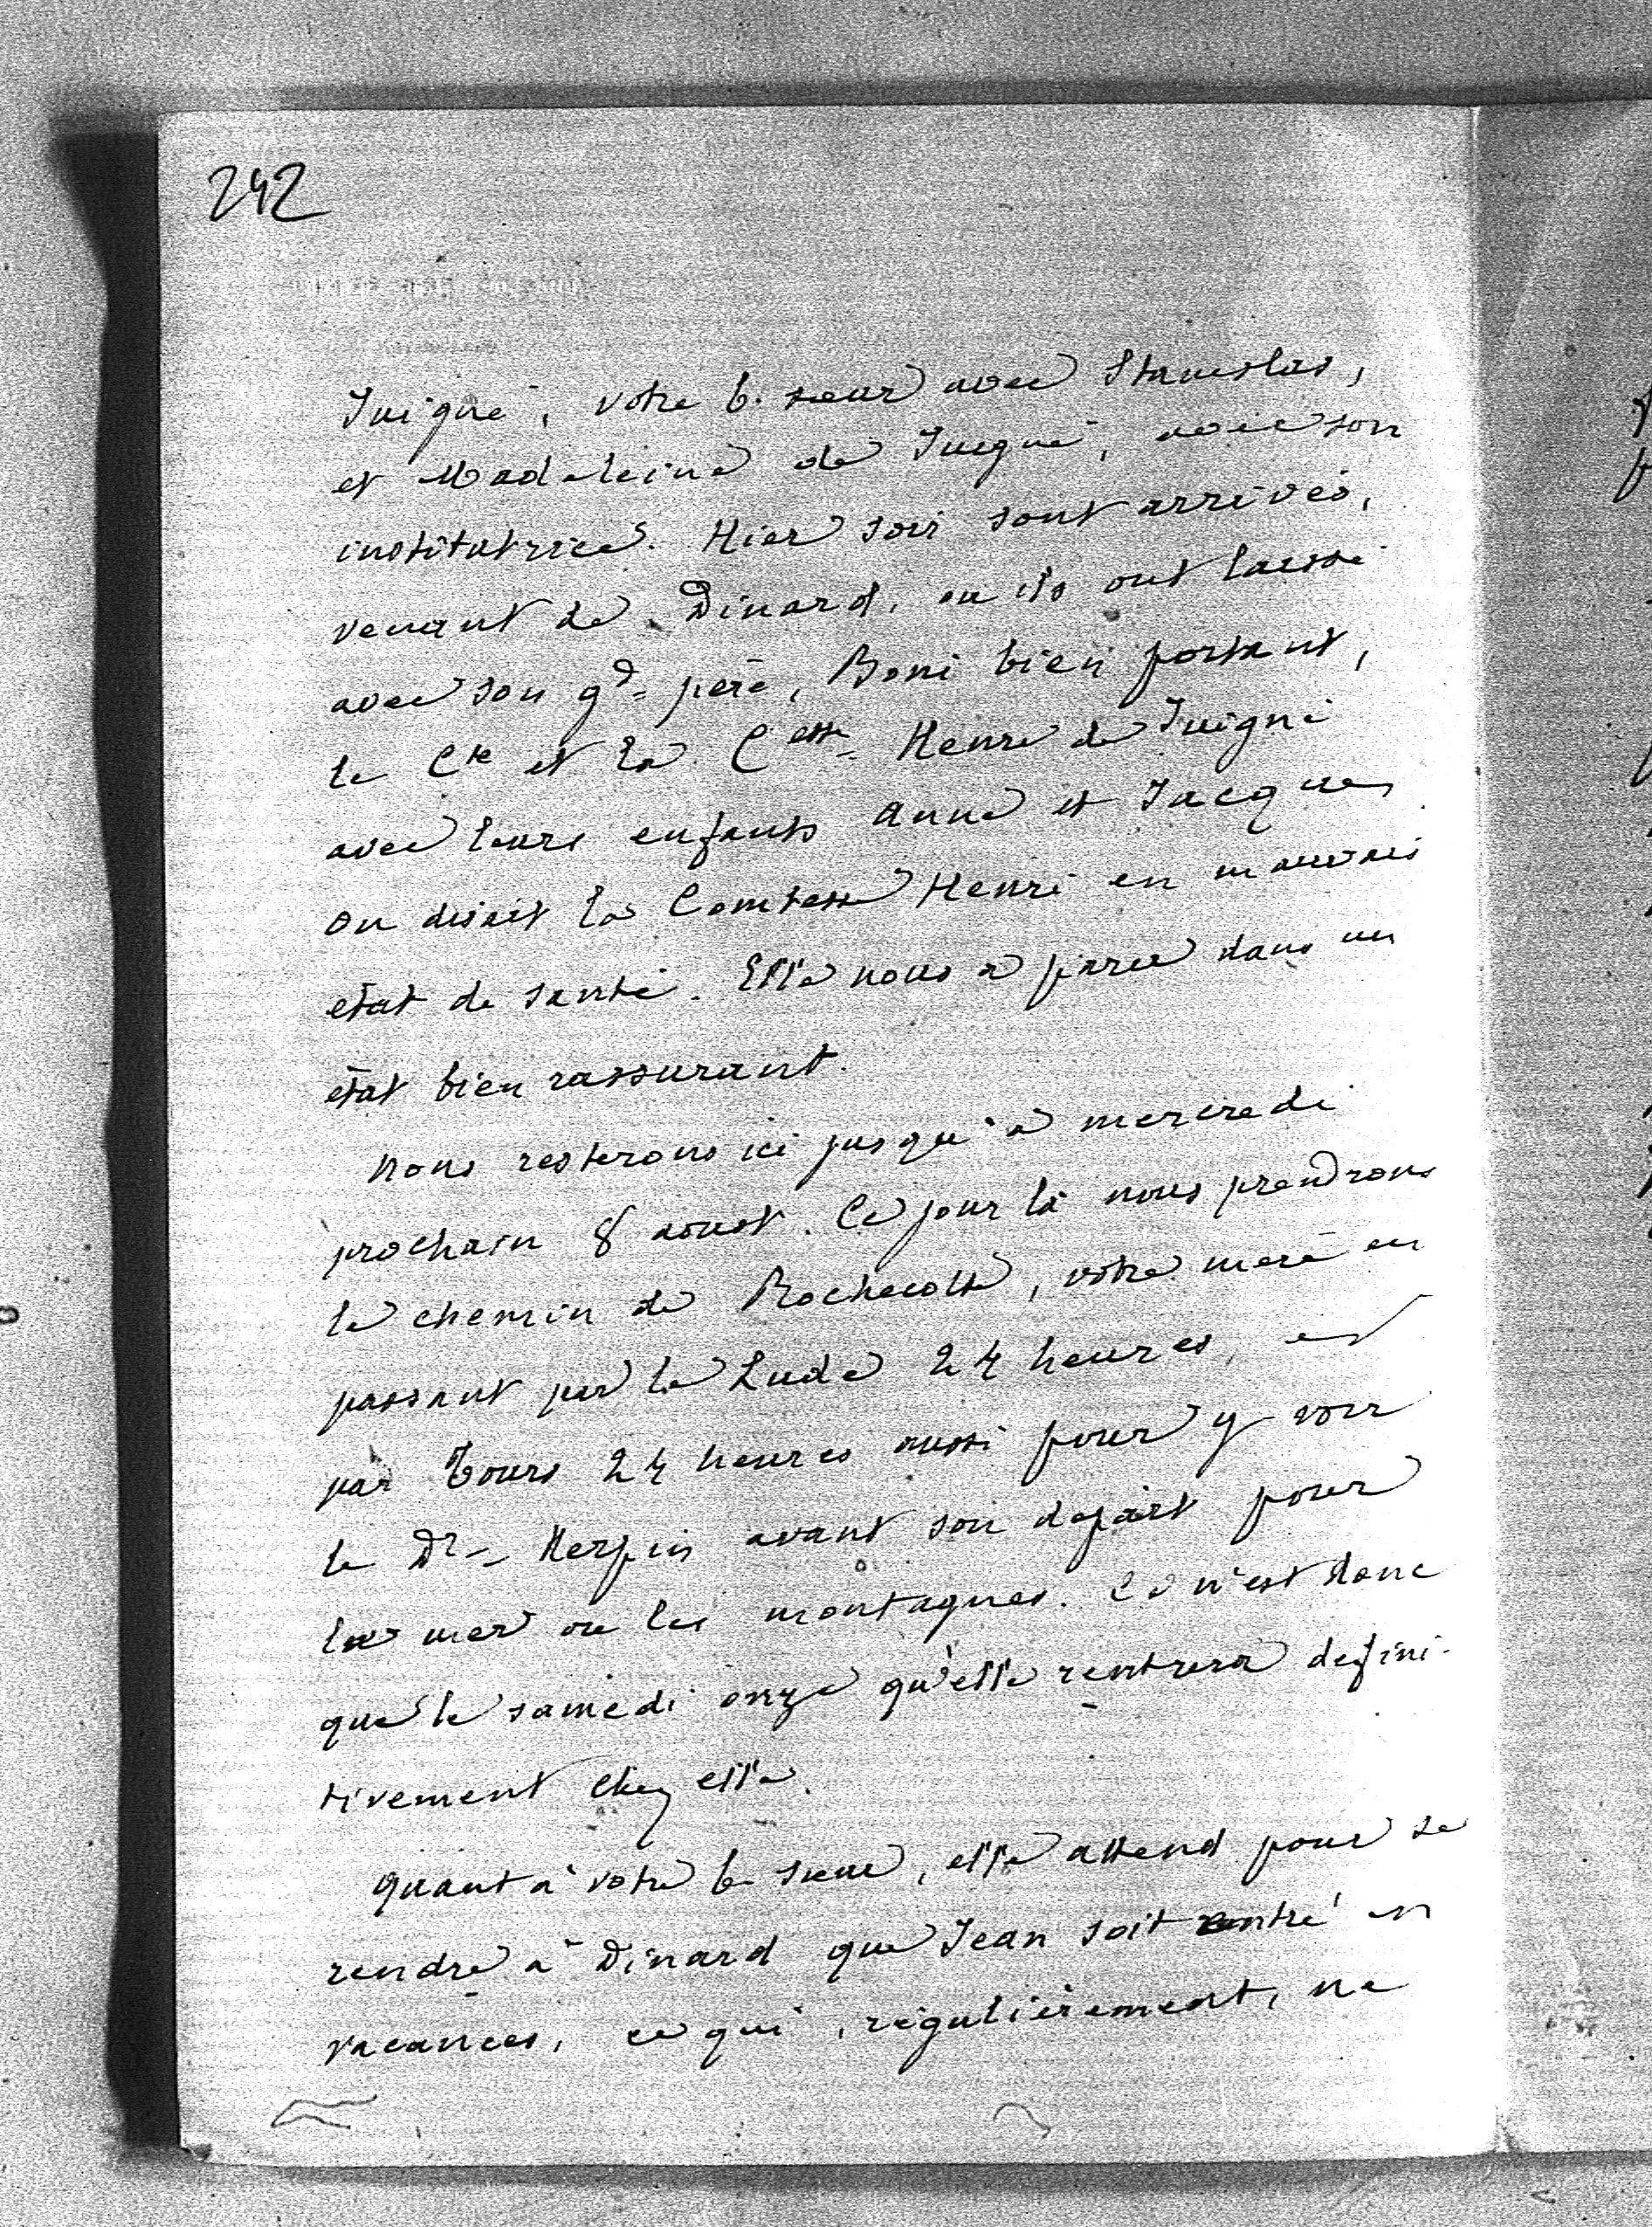 242
Juigné, votre b. sœur avec Stanislas,
et Madeleine de Juigné, avec son
institutrice. Hier soir sont arrivés,
venant de Dinard, ou ils ont laissé
avec son gd père, Boni bien portant,
le Cte et la Cesse Henri de Juigné
avec leurs enfants Anne et Jacques
on disait la Comtesse Henri en mauvais
état de santé. Elle nous a parue dans un
état bien rassurant.
Nous resterons ici jusqu'à mercredi
prochain 8 aoust. Ce jour là nous prendrons
le chemin de Rochecotte, votre mère en
passant par le Lude 24 heures, et
par Tours 24 heures aussi pour y voir
le Dr Herpin avant son départ pour
la mer ou les montagnes. Ce n'est donc
que le samedi onze qu'elle rentrera defini-
tivement chez elle.
Quant à votre b. sœur, elle attend pour se
rendre à Dinard que Jean soit rentré en
vacances, ce qui, régulièrement, ne